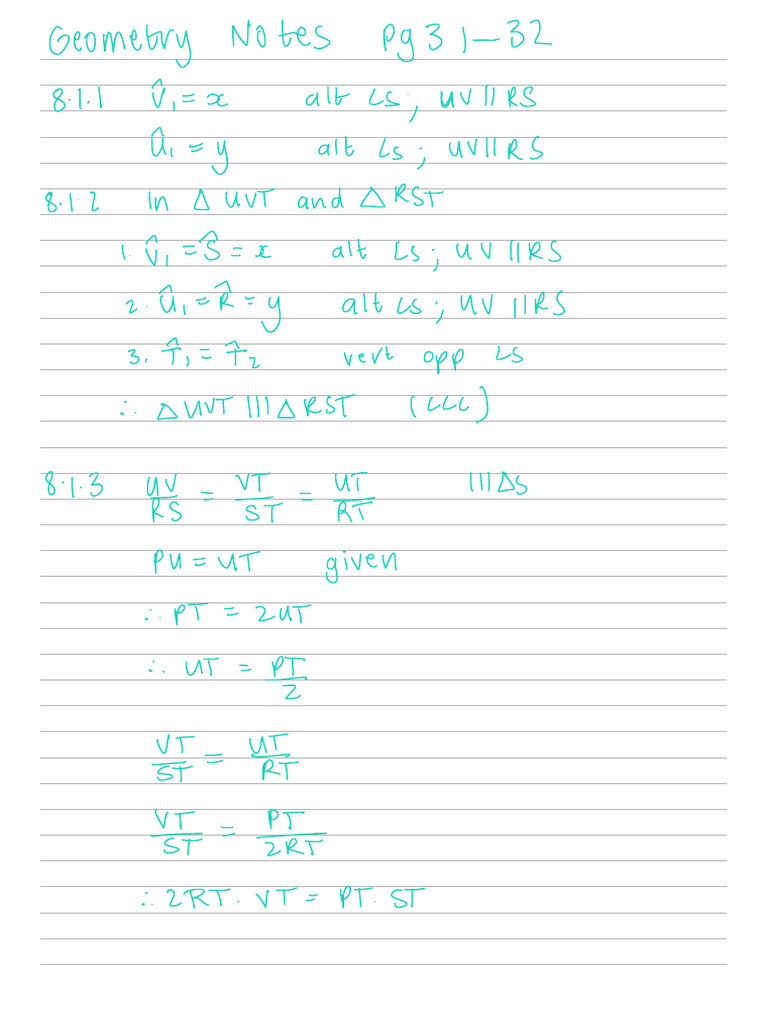 Geometry Notes pg 31-32
8.1.1 V̂₁ = x alt ∠s; UV||RS
Û₁ = y alt ∠s; UV||RS
8.1.2 In △ UVT and △ RST
1. V̂₁ = Ŝ = x alt ∠s; UV||RS
2. Û₁ = R̂ = y alt ∠s; UV||RS
3. T̂₁ = T̂₂ vert opp ∠s
∴ △UVT ||| △RST (∠∠∠)
8.1.3 UV/RS = VT/ST = UT/RT |||△s
PU = UT given
∴ PT = 2UT
∴ UT = PT/2
VT/ST = UT/RT
VT/ST = PT/2RT
∴ 2RT. VT = PT. ST